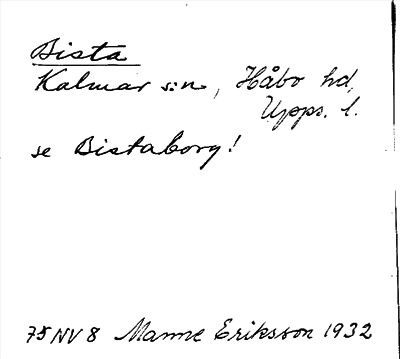 Bista
Kalmar s:n, Håbo hd,
Upps. l.
se Bistaborg!
75 NV 8 Manne Eriksson 1932